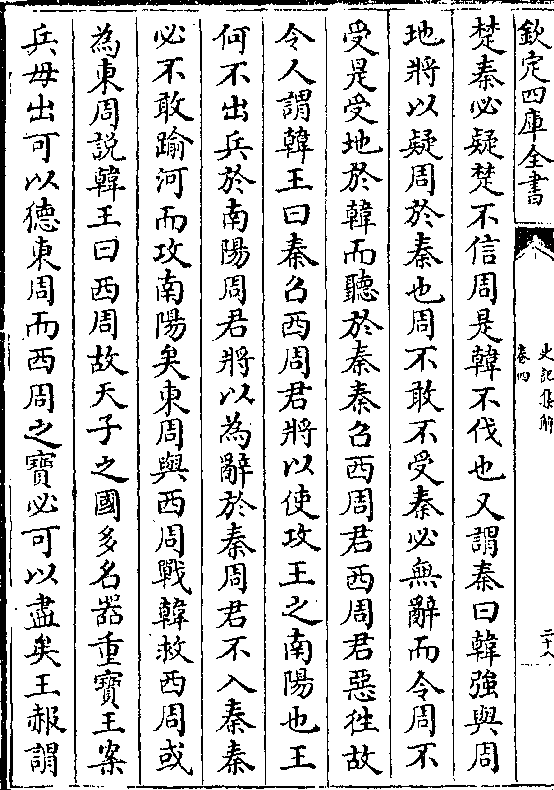 欽定四庫全書
史記集解
卷四
二十八
楚秦必疑楚不信周是韓不伐也又謂秦曰韓強與周
地將以疑周於秦也周不敢不受秦必無辭而令周不
受是受地於韓而聽於秦秦召西周君西周君惡徃故
令人謂韓王曰秦召西周君將以使攻王之南陽也王
何不出兵於南陽周君將以為辭於秦周君不入秦秦
必不敢踰河而攻南陽矣東周與西周戰韓救西周或
為東周說韓王曰西周故天子之國多名器重寶王案
兵毋出可以德東周而西周之寶必可以盡矣王赧謂